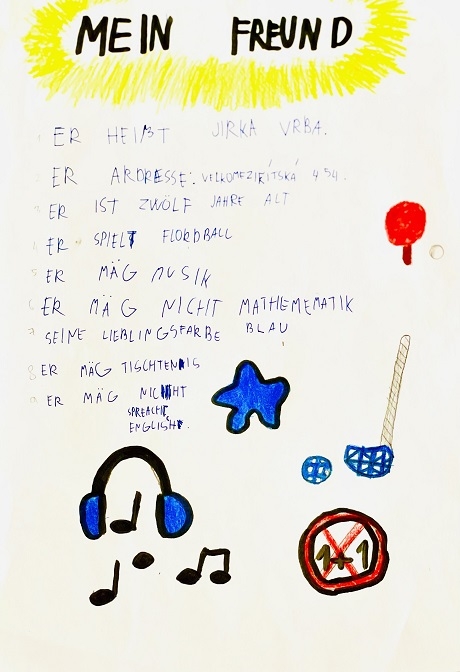 MEIN FREUND
1 ER HEIßT JIRKA VRBA.
2 ER ARDRESSE: VELKOMEZIŘÍTSKÁ 454.
3 ER IST ZWÖLF JAHRE ALT
4 ER SPIELT FLORBALL
5 ER MÄG MUSIK
6 ER MÄG NICHT MATHEMEMATIK
7 SEINE LIEBLINGSFARBE BLAU
8 ER MÄG TISCHTENNIS
9 ER MÄG NICHT
SPREACHE
ENGLISH.
1+1